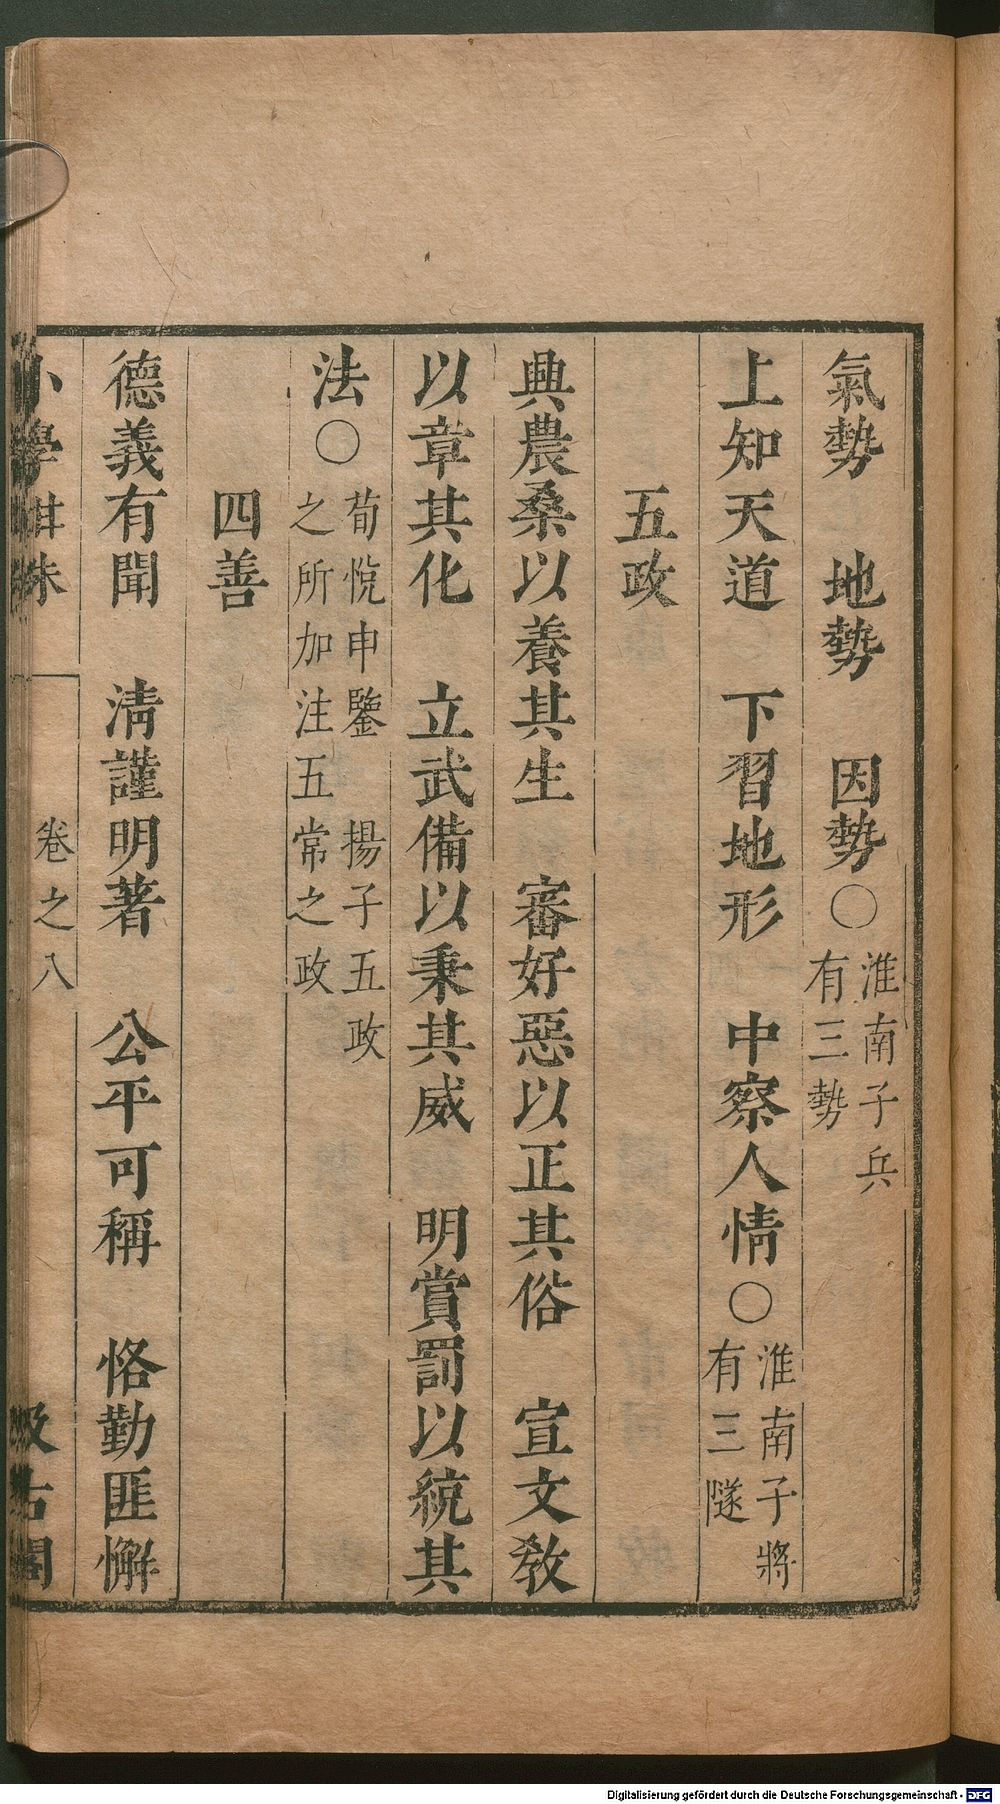 氣勢　地勢　因勢○淮南子兵有三勢
上知天道　下習地形　中察人情○淮南子將有三隧
五政
興農桑以養其生　審好惡以正其俗　宣文教
以章其化　立武備以秉其威　明賞罰以統其
法○荀悅申鑒　揚子五政之所加注五常之政
四善
德義有聞　淸謹明著　公平可稱　恪勤匪懈
小學紺珠　卷之八　汲古閣
Digitalisierung gefördert durch die Deutsche Forschungsgemeinschaft - DFG